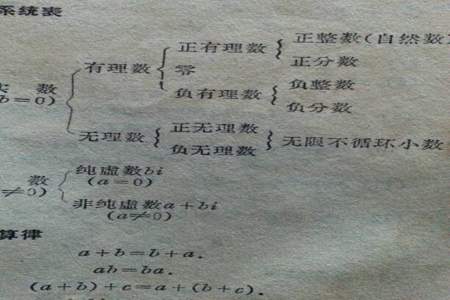 系统表
正整数(自然数)
正有理数
正分数
有理数
零
负整数
实 数
负有理数
(b=0)
负分数
正无理数
无理数
无限不循环小数
负无理数
纯虚数bi
数
(a=0)
≠0)
非纯虚数a+bi
(a≠0)
算律
a+b=b+a.
ab=ba.
(a+b)+c=a+(b+c).